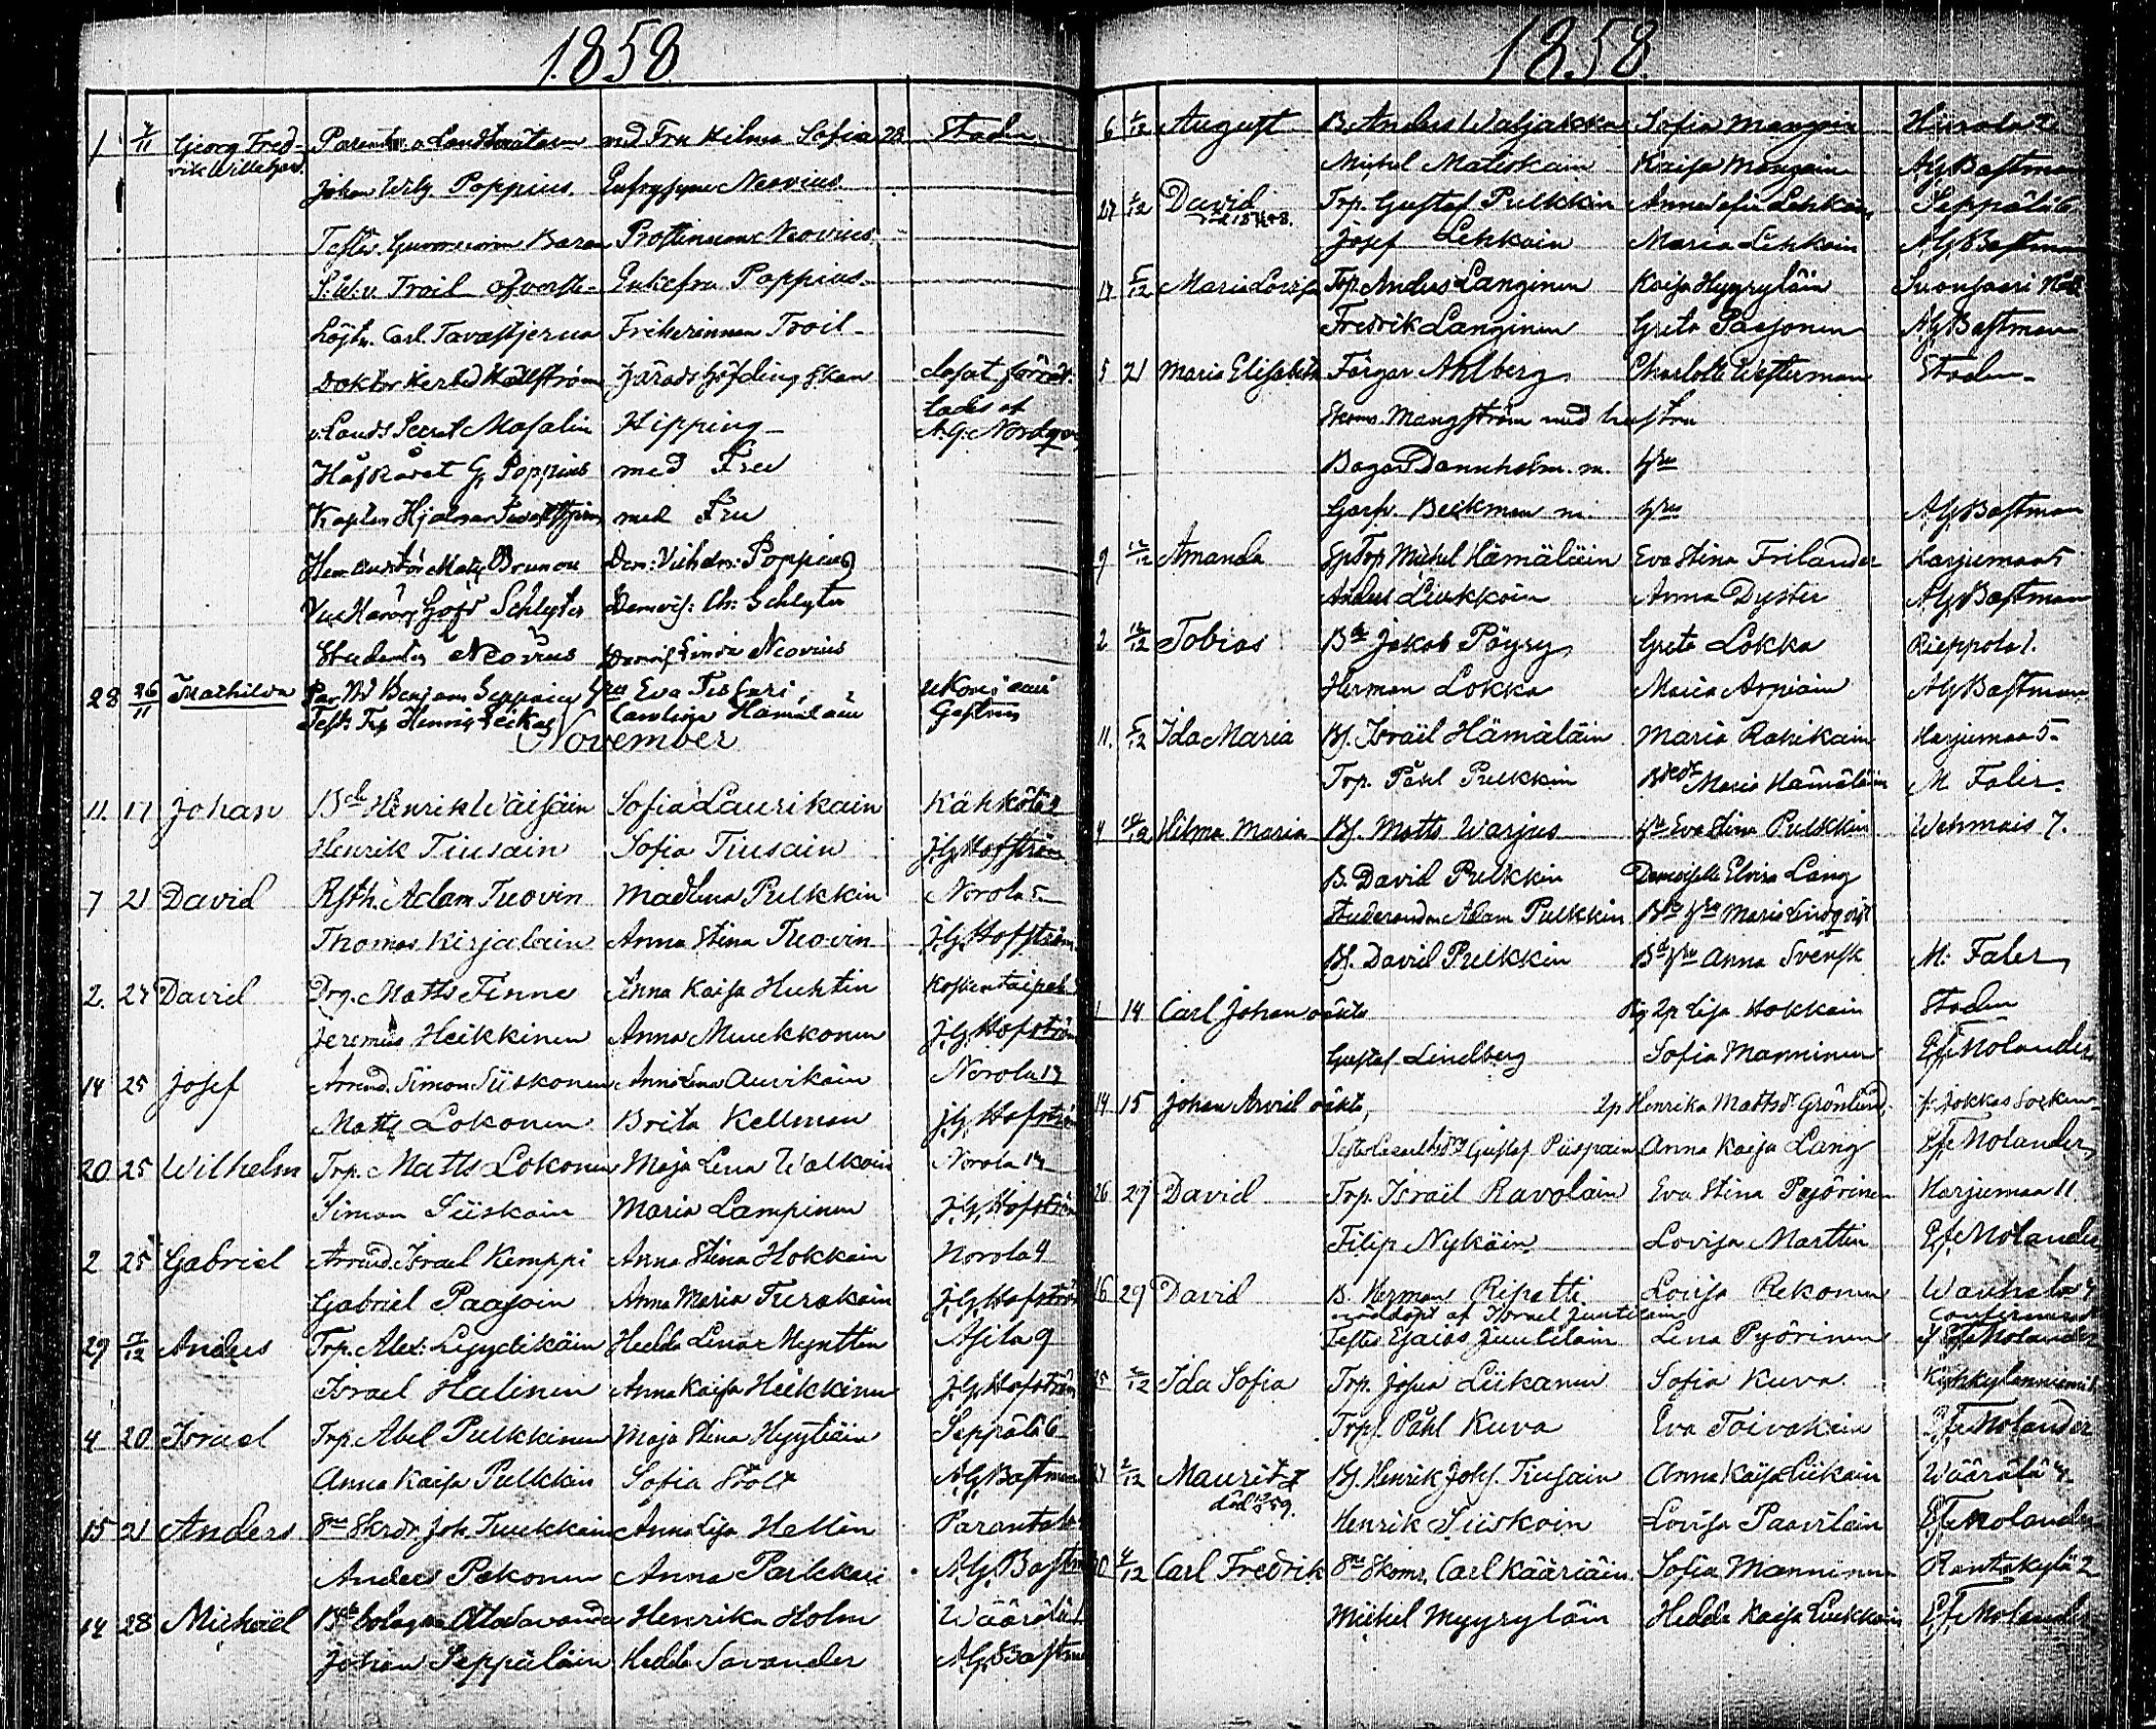 1858
1 7/11 Georg Fred- Parentes: Landträtaren med Fru Hilma Sofia 28 Staden
rik Willehard. Johan Wilh. Poppius. Eufrosyne Neovius
Test: Guvernören Baron Prostinnan Neovius
S. W. v. Troil Öfverste- Enkefru Poppius
Löjtn. Carl Tavastjerna Friherinnan Troil
Doktor Herbd Hällström Häradshöfding skan dopat förrät-
v. Lands Secret Masalin Hipping tades af A. G. Nordqv
Håfråret G. Poppius med Fru
Kapten Hjalmar Tavastjerna med Fru
Brunou Dem: Vilhelm: Poppius
Vice Häradshöfd Schlyter Demois: Ch: Schlyter
Studenten Neovius Demois Linda Neovius
28 26/11 Mathilda Par. Bd Benjam Seppäin hru Eva Tissari Ukonsaari
Test: Trp Henrik Leikas Carolina Hämäläin
November
11. 17 Johan Bde Henrik Wäisäin Sofia Laurikain Kähkölä 2
Henrik Tiusain Sofia Tiusain J. G. Hofström
7 21 David Rsth. Adam Tuovin Madlena Pulkkin Norola 5
Thomas Kirjalain Anna Stina Tuovin J. G. Hofström
2. 24 David Drg. Matts Finne Anna Kaisa Huhtin Koskentaipal
Jeremias Heikkinen Anna Muukkonen J. G. Hofström
14 25 Josef Arrend. Simon Siiskonen Anna Lena Auvikain Norola 14
Matts Lokonen Brita Kellman J. G. Hofström
20 25 Wilhelm Trp. Matts Lokonen Maja Lena Walkoin Norola 14
Simon Siiskoin Maria Lampinen J. G. Hofström
2 25 Gabriel Arrend. Israel Kemppi Anna Stina Hokkain Norola 4
Gabriel Paasoin Anna Maria Turakain J. G. Hofström
29 1/12 Anders Trp. Alex: Lyydikäin Hedda Lena Mynttin Asila 9
Israel Halinen Anna Kaisa Heikkinen J. G. Hofström
4 20 Israel Trp. Abel Pulkkinen Maja Stina Hyytiäin Seppälä 6
Anna Kaisa Pulkkin Sofia Stolt A. G. Bastman
15 21 Anders Skrdr. Joh. Tuukkain Anna Lisa Hellen Parantala
Anders Pekonen Anna Parkkari A. G. Bastm
14 28 Michaël Otto Savander Henrika Holm Wäärälä 1
Johan Seppäläin Hedda Savander A. G. Bastm
1858.
6 1/12 August B. Anders Waljakka Sofia Mangoin Hurola 2
Michel Matiskain Kaisa Mangoin A G Bastman
27 1/12 David Trp. Gustaf Pulkkin Anna Sofia Lehkoin Seppälä 6
Josef Lehkoin Maria Lehkoin A G Bastman
17 5/12 Maria Lovisa Trp Anders Langinen Kaisa Hyyryläin Suonsaari No 2
Fredrik Langinen Greta Paasonen A G Bastman
5 21 Maria Elisabeth Färgar Ahlberg Charlotte Westerman Staden
Skom. Mangström med hustru
Bagar Dannholm. m. hru
Garfv. Beckman m. hru A G Bastman
9 12/12 Amanda Michel Hämäläin Eva Stina Frilander Harjumaa 5
Anders Liukkoin Anna Dyster A G Bastman
2 12/12 Tobias Bde Jakob Pöyry Greta Lokka Rieppola 1.
Herman Lokka Maria Arpiain A G Bastman
11. 5/12 Ida Maria Bf. Israël Hämäläin Maria Rahikain Harjumaa 5
Trp. Påhl Pulkkin Maria Hämäläin M. Faler
4 12/12 Hilma Maria Bf. Matts Warjus hru Eva Stina Pulkkin Wehmais 7.
B. David Pulkkin Demoiselle Elvira Lang
Studeranden Adam Pulkkin Bde hru Maria Lindqvist
Bf. David Pulkkin Bde hru Anna Svensk M. Faler
1 14 Carl Johan oäkta Pig Lisa Hokkain Staden
Gustaf Lindberg Sofia Manninen P. F. Molander
14 15 Johan Arvid oäkta, Henrika Mattsdr Grönlund fr Jokkas Socken
Gustaf Piispain Anna Kaisa Lang P. F. Molander
26 27 David Trp. Israël Ravolain Eva Stina Pöyörinen Harjumaa 11
Filip Nykäin Lovisa Marttin P. F. Molander
16 29 David B. Herman Ripatti Lovisa Rekonen Wanhala 4
nöddöpt af Israel Juutilain confirmerad
Testes Esaias Juutilain Lena Pyörinen af P. F. Molander
25 2/12 Ida Sofia Trp. Josua Liikanen Sofia Kuva Kyyhkylänniemi
Trp. Påhl Kuva Eva Toivakain P. F. Molander
27 2/12 Maurits Bf. Henrik Johs. Tiusain Anna Kaisa Liikain Wäärälä 4
död Henrik Siiskoin Lovisa Paavilain P. F. Molander
4/12 Carl Fredrik Skoms. Carl Kääriäin Sofia Manninen Rantakylä 2
Michel Myyryläin Hedda Kaisa Liukkoin P. F. Molander